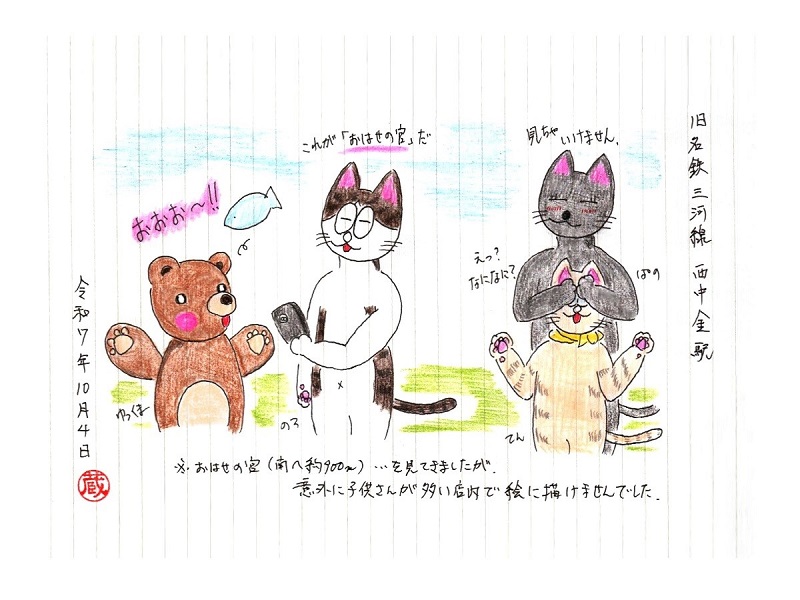 旧名鉄三河線 西中金駅
見ちゃいけません。
これが「おはせの宮」だ
おおお〜!!
えっ?
なになに?
ぱの
ゆっくま
のろ
てん
令和7年10月4日
蔵
※おはせの宮(南へ約900m)…を見てきましたが、
意外に子供さんが多い店内で絵に描けませんでした。